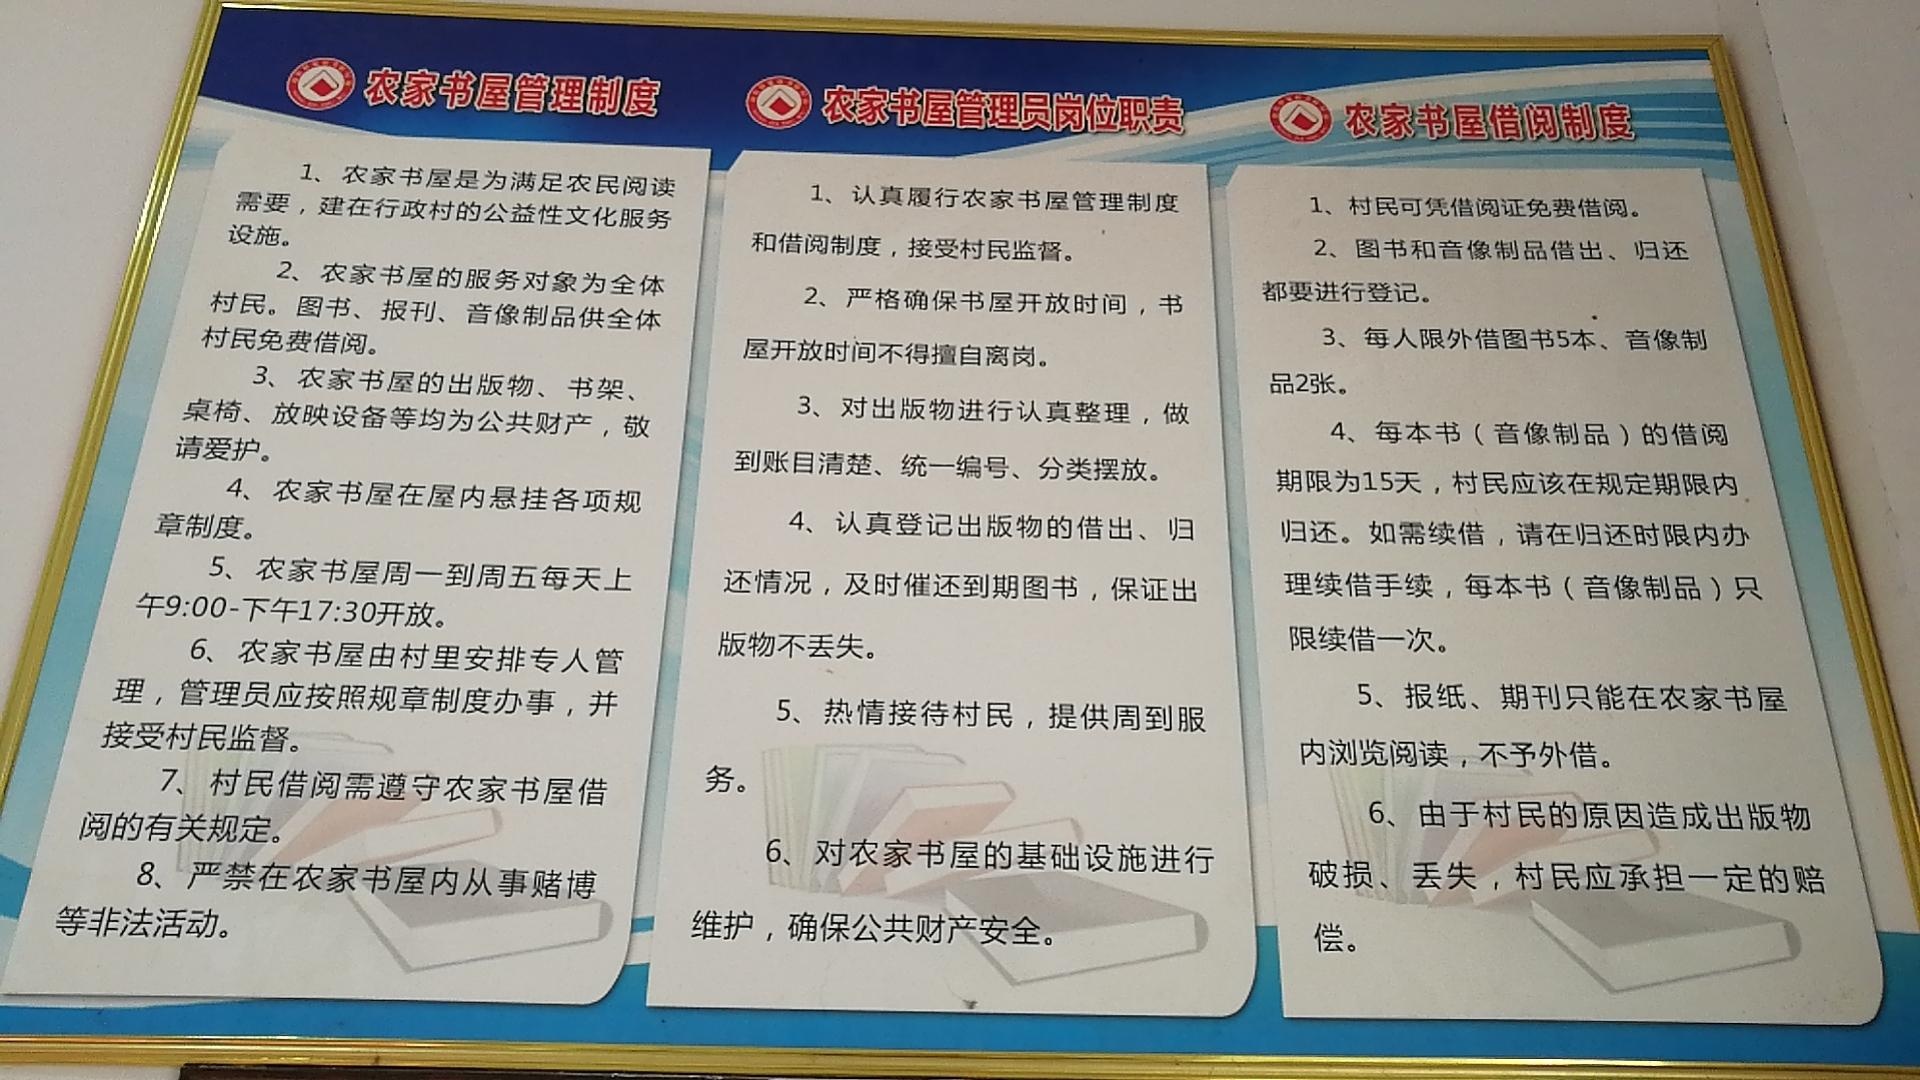 农家书屋管理制度
1、农家书屋是为满足农民阅读
需要，建在行政村的公益性文化服务
设施。
2、农家书屋的服务对象为全体
村民。图书、报刊、音像制品供全体
村民免费借阅。
3、农家书屋的出版物、书架、
桌椅、放映设备等均为公共财产，敬
请爱护。
4、农家书屋在屋内悬挂各项规
章制度。
5、农家书屋周一到周五每天上
午9:00-下午17:30开放。
6、农家书屋由村里安排专人管
理，管理员应按照规章制度办事，并
接受村民监督。
7、村民借阅需遵守农家书屋借
阅的有关规定。
8、严禁在农家书屋内从事赌博
等非法活动。
农家书屋管理员岗位职责
1、认真履行农家书屋管理制度
和借阅制度，接受村民监督。
2、严格确保书屋开放时间，书
屋开放时间不得擅自离岗。
3、对出版物进行认真整理，做
到账目清楚、统一编号、分类摆放。
4、认真登记出版物的借出、归
还情况，及时催还到期图书，保证出
版物不丢失。
5、热情接待村民，提供周到服
务。
6、对农家书屋的基础设施进行
维护，确保公共财产安全。
农家书屋借阅制度
1、村民可凭借阅证免费借阅。
2、图书和音像制品借出、归还
都要进行登记。
3、每人限外借图书5本、音像制
品2张。
4、每本书（音像制品）的借阅
期限为15天，村民应该在规定期限内
归还。如需续借，请在归还时限内办
理续借手续，每本书（音像制品）只
限续借一次。
5、报纸、期刊只能在农家书屋
内浏览阅读，不予外借。
6、由于村民的原因造成出版物
破损、丢失，村民应承担一定的赔
偿。